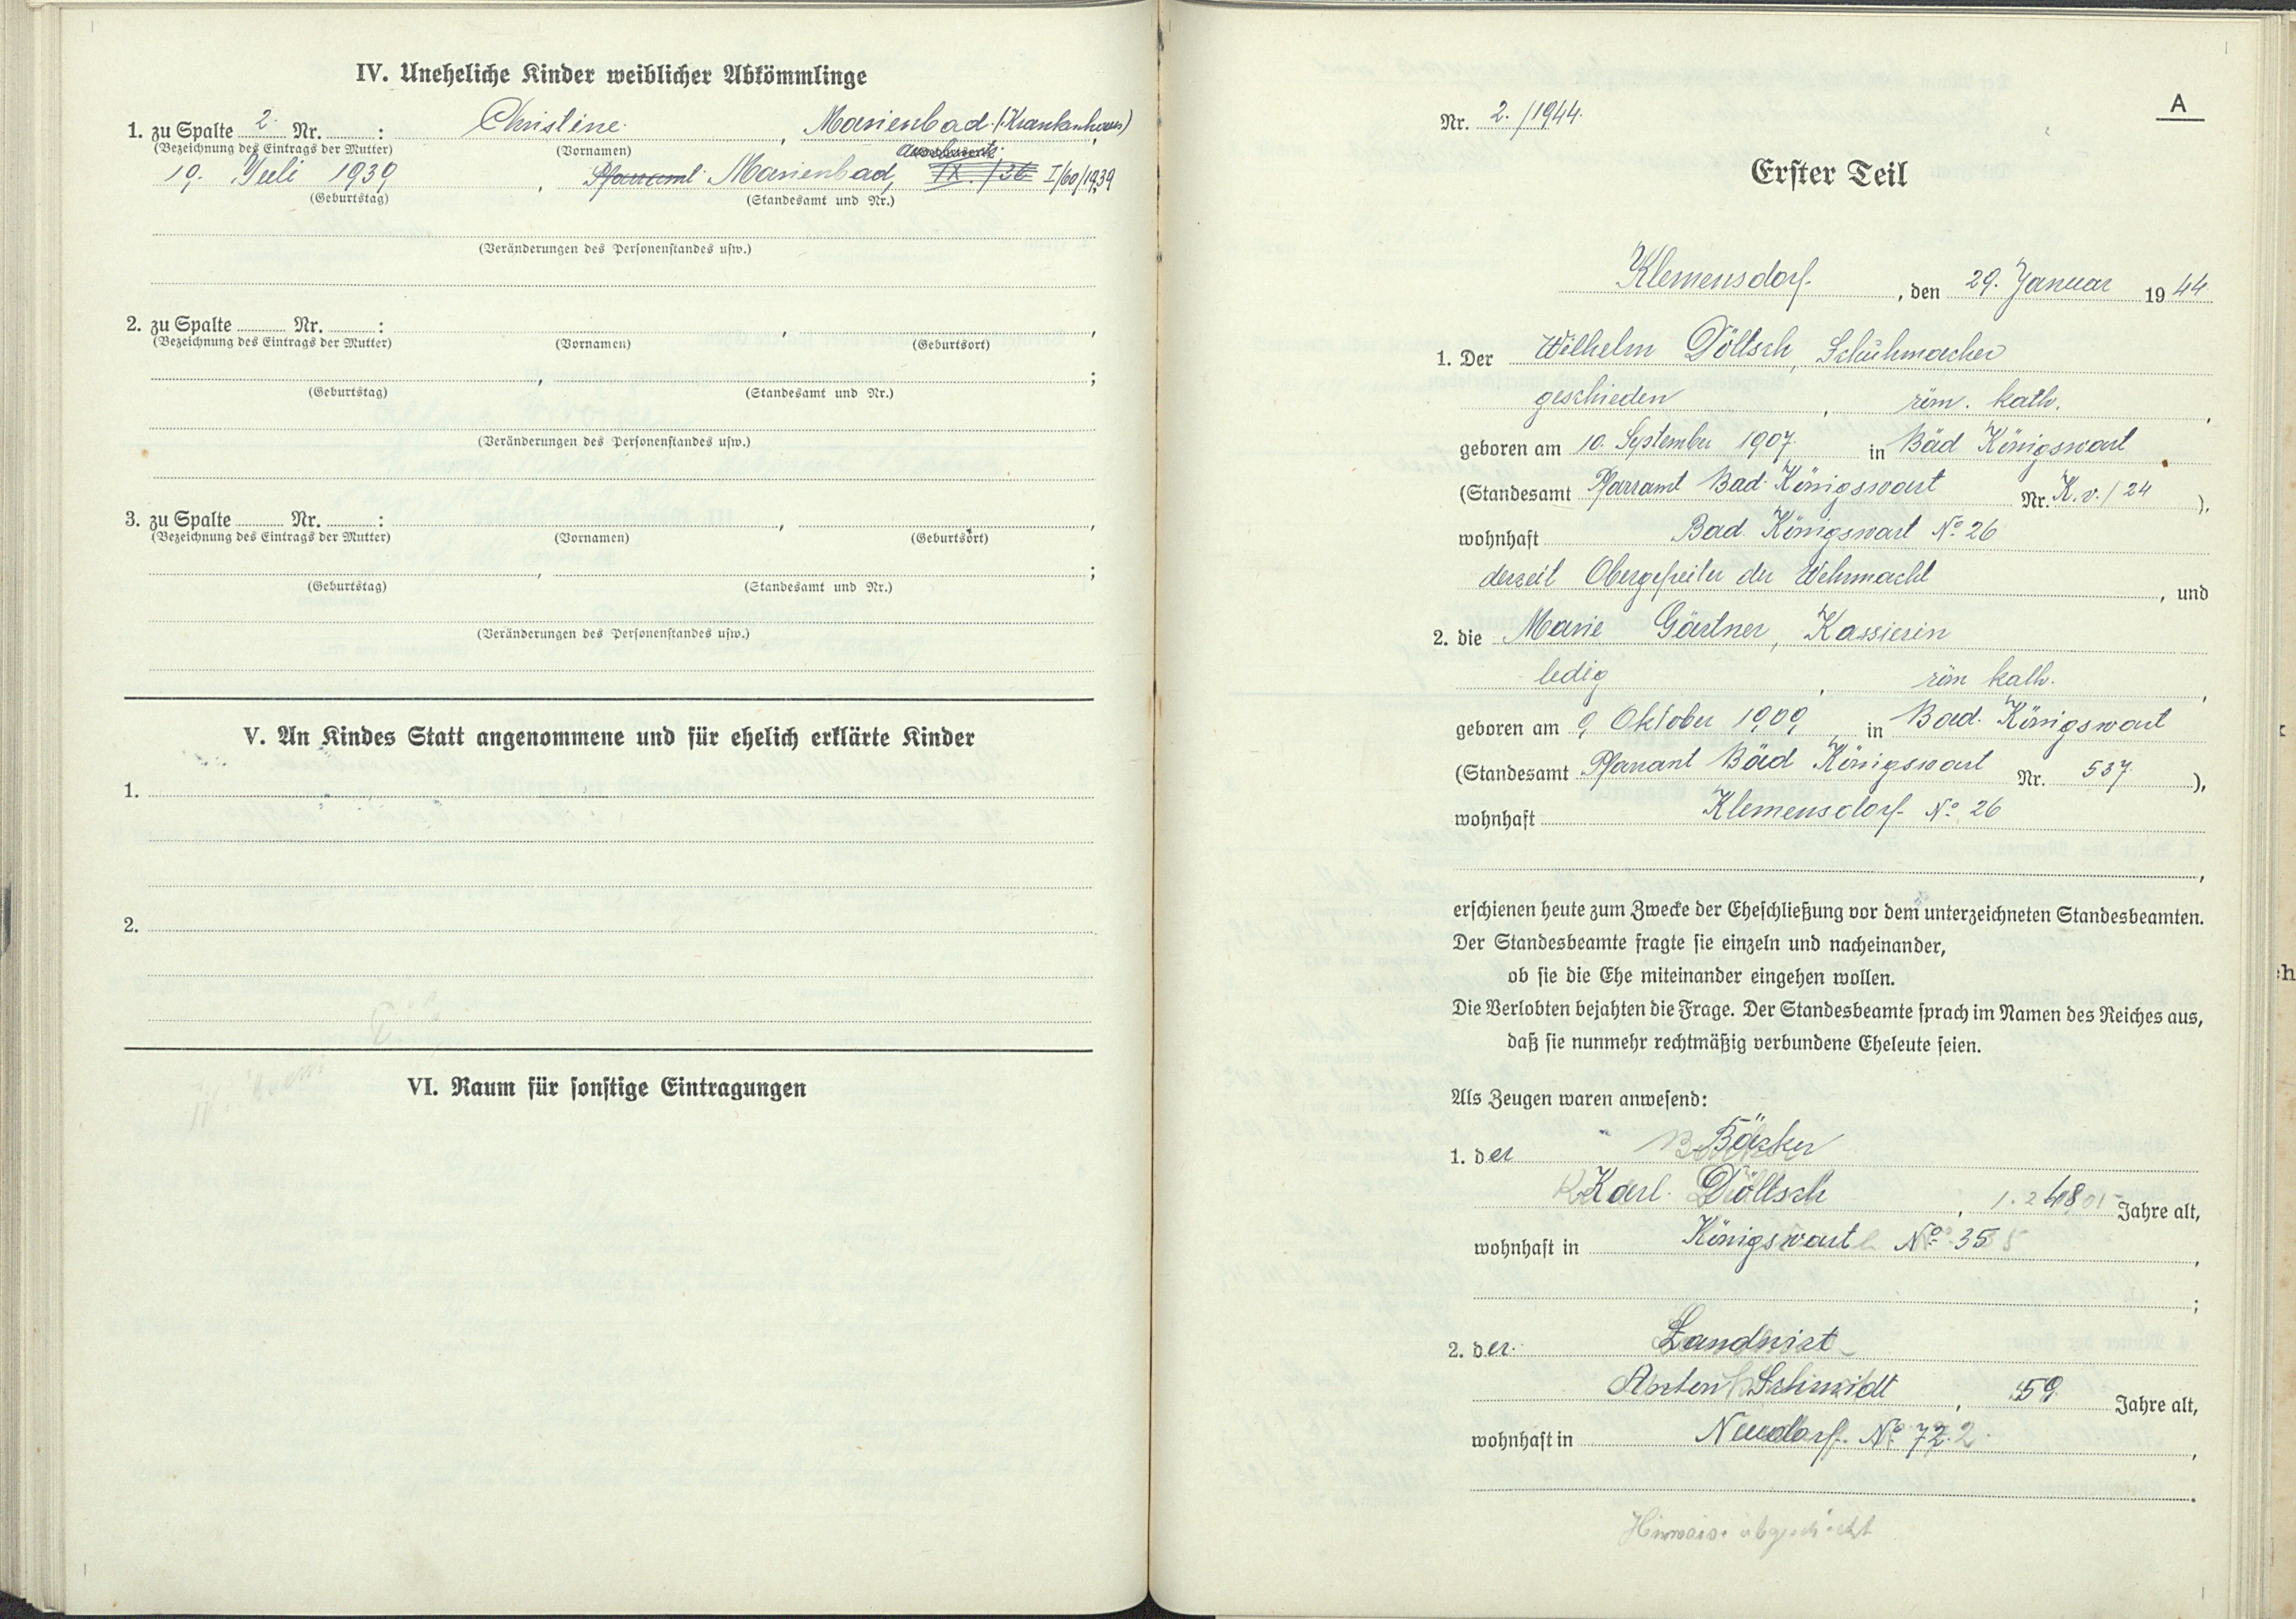 IV. Uneheliche Kinder weiblicher Abkömmlinge
1. zu Spalte 2. Nr. : Christine , Marienbad (Krankenhaus)
(Bezeichnung des Eintrags der Mutter) (Vornamen)
19. Juli 1939 , Pfarramt Marienbad, IX. /36 I/60/1939
(Geburtstag) (Standesamt und Nr.)
(Veränderungen des Personenstandes usw.)
2. zu Spalte Nr. : , ,
(Bezeichnung des Eintrags der Mutter) (Vornamen) (Geburtsort)
, ;
(Geburtstag) (Standesamt und Nr.)
(Veränderungen des Personenstandes usw.)
3. zu Spalte Nr. : , ,
(Bezeichnung des Eintrags der Mutter) (Vornamen) (Geburtsort)
, ;
(Geburtstag) (Standesamt und Nr.)
(Veränderungen des Personenstandes usw.)
V. An Kindes Statt angenommene und für ehelich erklärte Kinder
1.
2.
VI. Raum für sonstige Eintragungen
A
Nr. 2. /1944.
Erster Teil
Klemensdorf. , den 29. Januar 1944
1. Der Wilhelm Döltsch, Schuhmacher
geschieden , röm. kath. ,
geboren am 10. September 1907. in Bad Königswart
(Standesamt Pfarramt Bad Königswart Nr. K.v./24 ),
wohnhaft Bad Königswart No 26
derzeit Obergefreiter der Wehrmacht , und
2. die Marie Gärtner, Kassierin
ledig , röm kath. ,
geboren am 9 Oktober 1909 in Bad Königswart
(Standesamt Pfarramt Bad Königswart Nr. 537. ),
wohnhaft Klemensdorf No 26
,
erschienen heute zum Zwecke der Eheschließung vor dem unterzeichneten Standesbeamten.
Der Standesbeamte fragte sie einzeln und nacheinander,
ob sie die Ehe miteinander eingehen wollen.
Die Verlobten bejahten die Frage. Der Standesbeamte sprach im Namen des Reiches aus,
daß sie nunmehr rechtmäßig verbundene Eheleute seien.
Als Zeugen waren anwesend:
1. der Bäcker
Karl Döltsch , 48 Jahre alt,
wohnhaft in Königswart No 35 ,
;
2. der Landwirt
Anton Schmidt , 59 Jahre alt,
wohnhaft in Neudorf No 72. ,
.
Hinweise